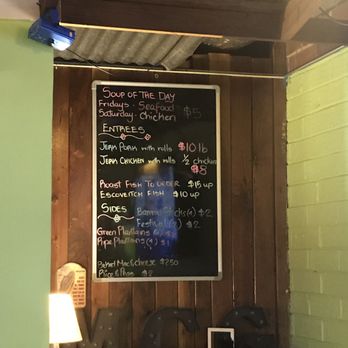 SOUP OF THE DAY
Fridays - Seafood
Saturday - Chicken $5
ENTREES
JERK PORK with rolls $10 lb
JERK CHICKEN with rolls ½ chicken
$8
ROAST FISH TO ORDER $15 up
ESCOVEITCH FISH $10 up
SIDES
Bammy Sticks(4) $2
Festival $2
Green Plantains
Ripe Plantains(4) $1
Baked Mac & Cheese $2.50
Rice & Peas $2